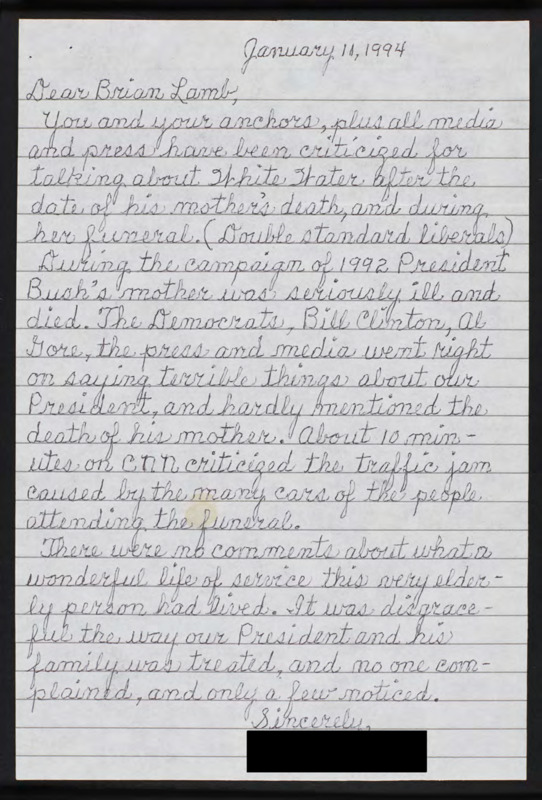 January 11, 1994
Dear Brian Lamb,
You and your anchors, plus all media
and press have been criticized for
talking about White Water after the
date of his mother's death, and during
her funeral. (Double standard liberals)
During the campaign of 1992 President
Bush's mother was seriously ill and
died. The Democrats, Bill Clinton, Al
Gore, the press and media went right
on saying terrible things about our
President, and hardly mentioned the
death of his mother. About 10 min-
utes on CNN criticized the traffic jam
caused by the many cars of the people
attending the funeral.
There were no comments about what a
wonderful life of service this very elder-
ly person had lived. It was disgrace-
ful the way our President and his
family was treated, and no one com-
plained, and only a few noticed.
Sincerely,